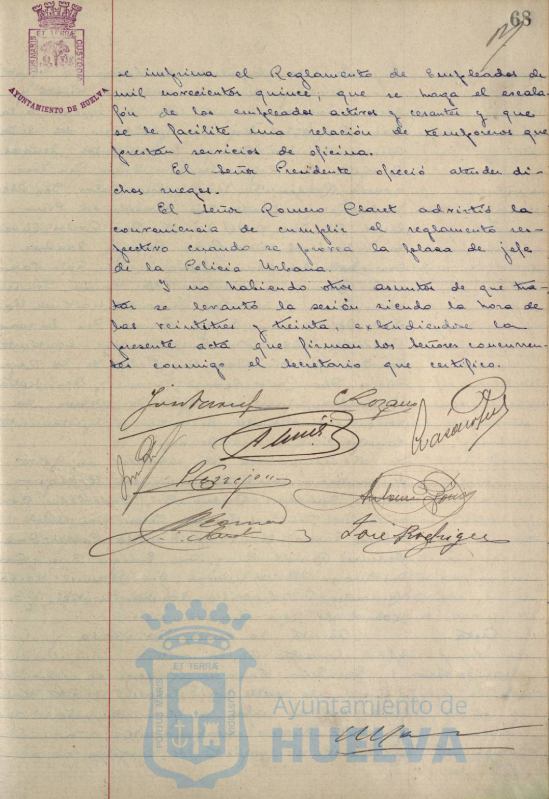 68
PORTUS MARIS ET TERRÆ CUSTODIA
AYUNTAMIENTO DE HUELVA
se imprima el Reglamento de Empleados de
mil novecientos quince, que se haga el escala-
fón de los empleados activos y cesantes y que
se le facilite una relación de temporeros que
prestan servicios de oficina.
El Señor Presidente ofreció atender di-
chos ruegos.
El Señor Romero Claret advirtió la
conveniencia de cumplir el reglamento res-
pectivo cuando se provea la plaza de jefe
de la Policía Urbana.
Y no habiendo otros asuntos de que tra-
tar se levantó la sesión siendo la hora de
las veintitres y treinta, extendiendose la
presente acta que firman los Señores concurren-
tes conmigo el secretario que certifico.
José Rodriguez
PORTUS MARIS ET TERRÆ CUSTODIA
Ayuntamiento de
HUELVA